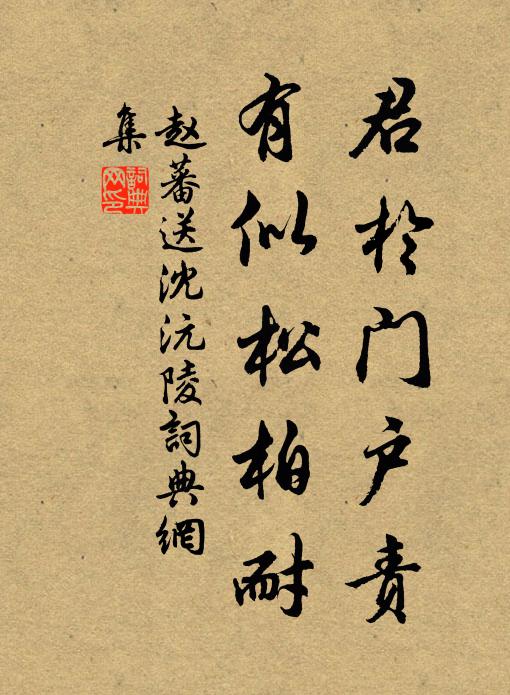 君於门户责
有似松柏耐
赵蕃送沈沅陵詞典網
集
詞典网印